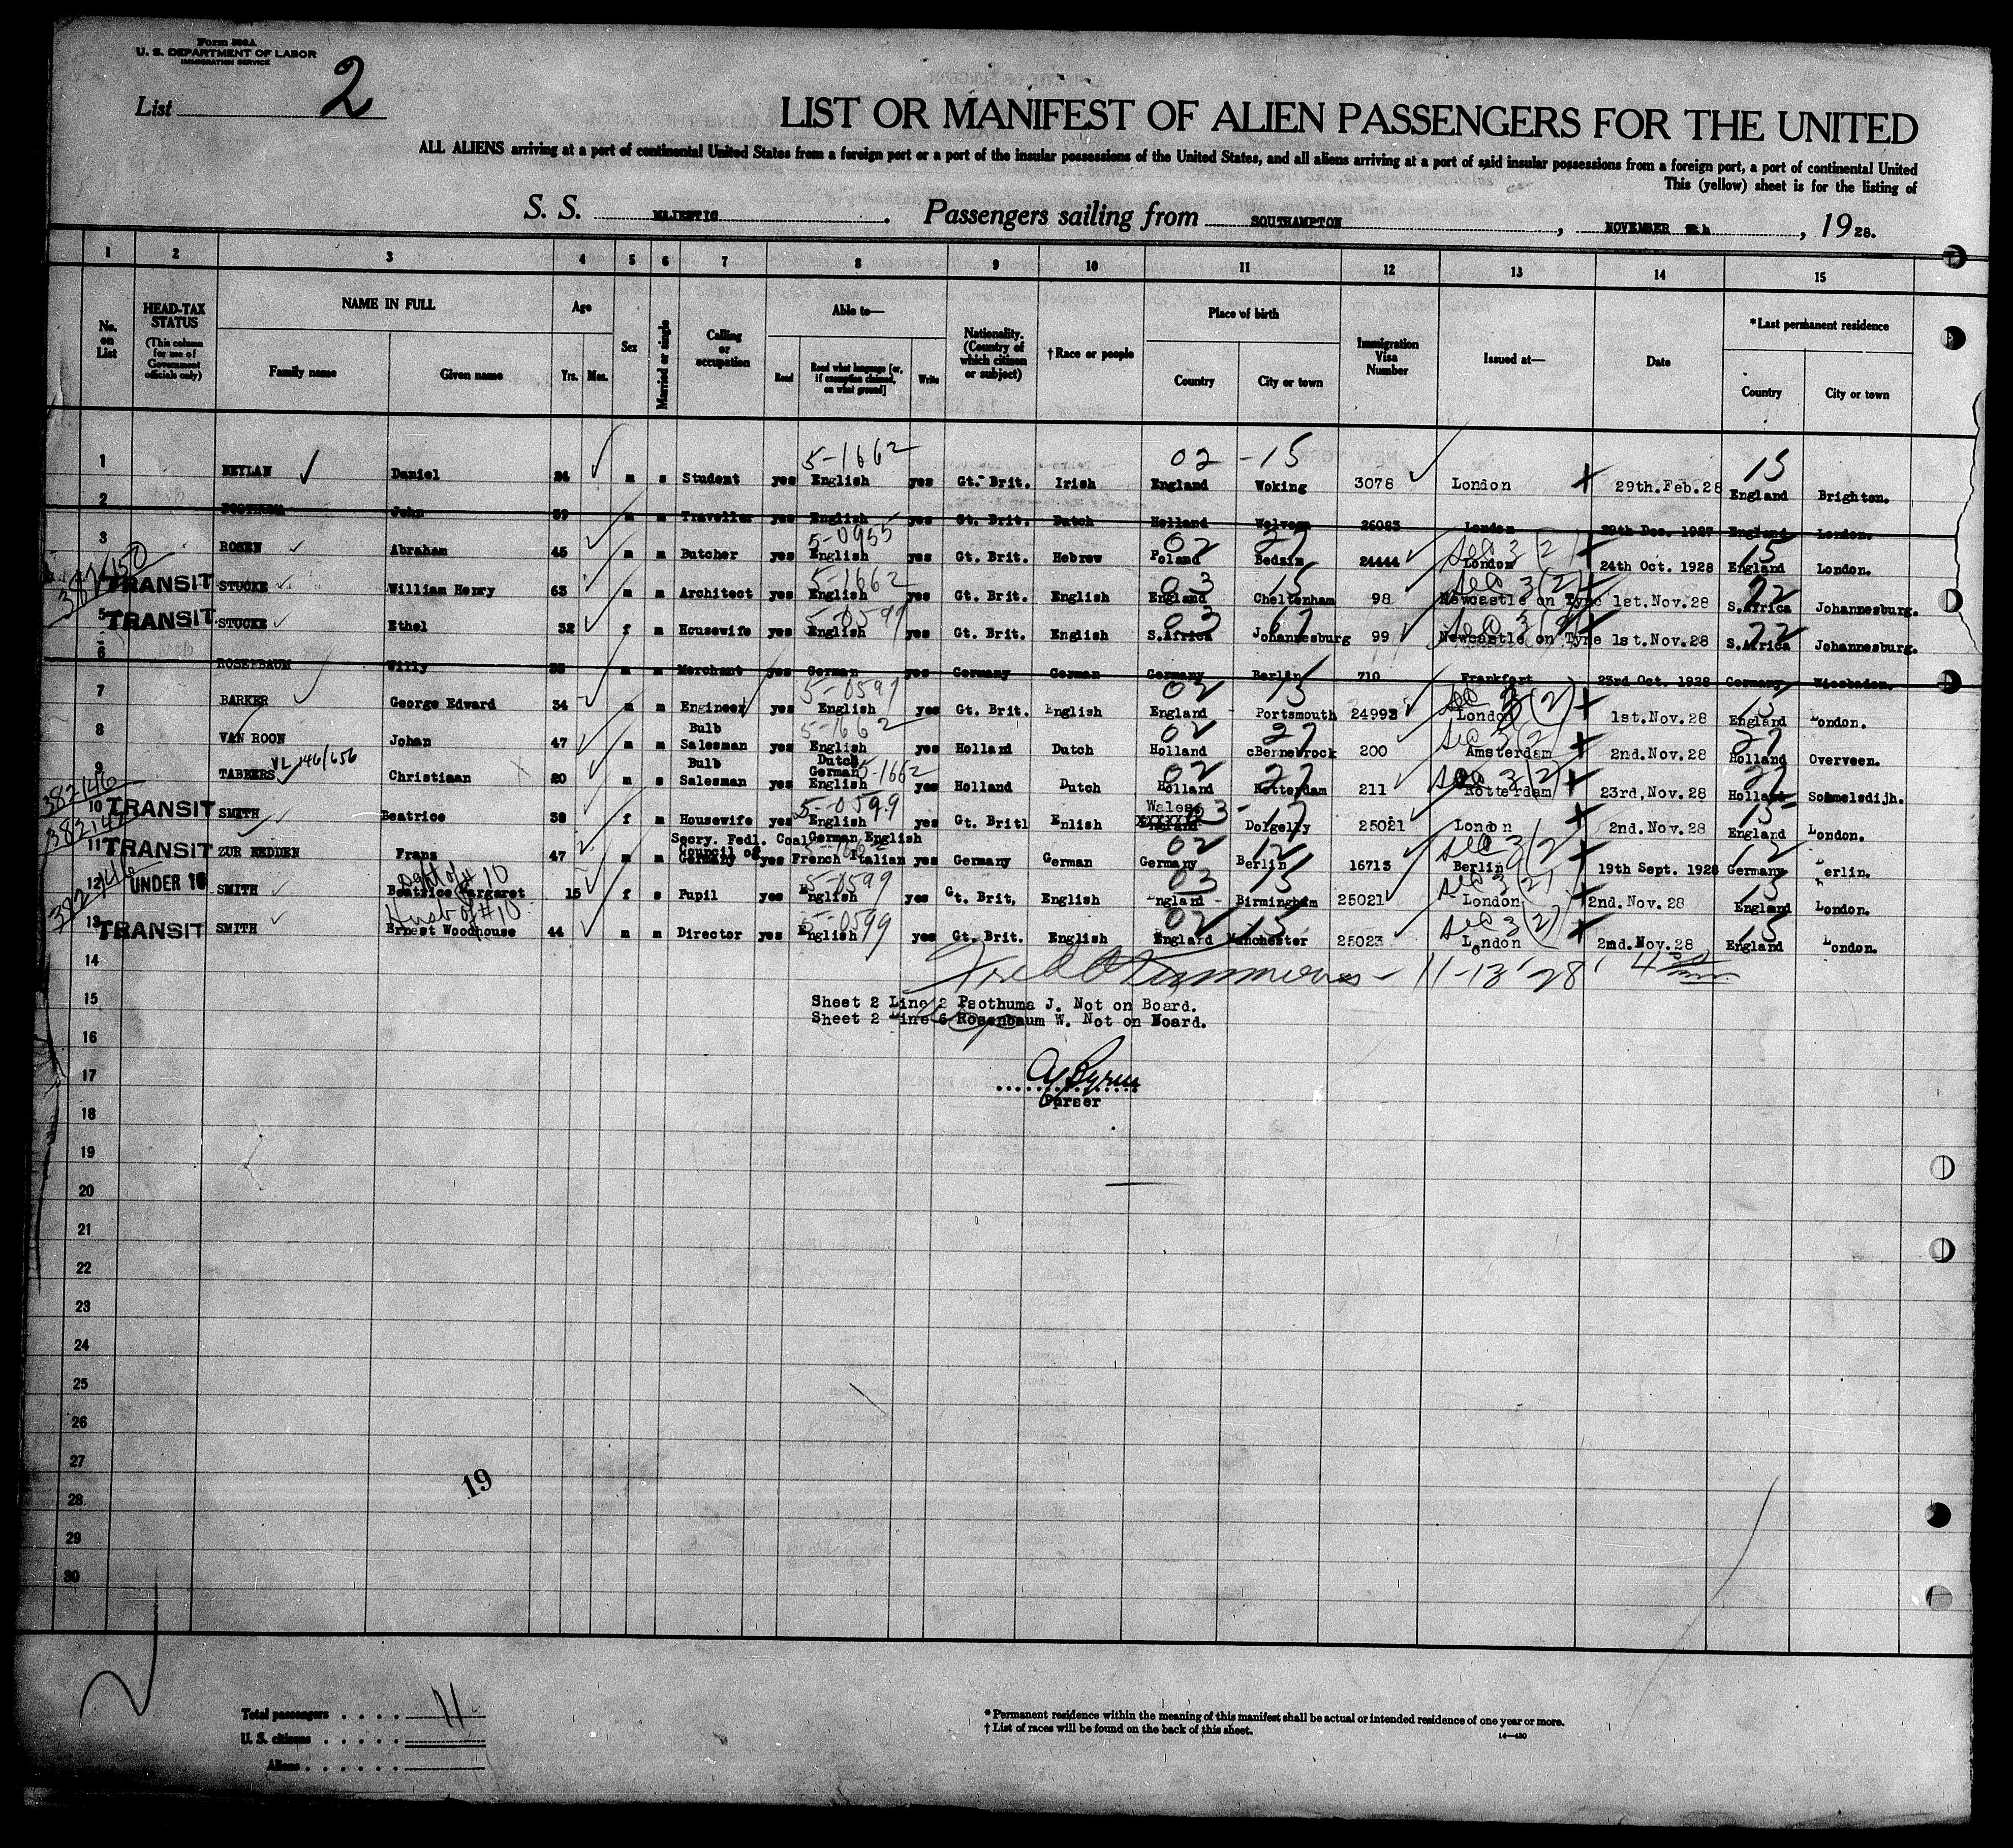 Form 500A
U. S. DEPARTMENT OF LABOR
IMMIGRATION SERVICE
List 2
LIST OR MANIFEST OF ALIEN PASSENGERS FOR THE UNITED
ALL ALIENS arriving at a port of continental United States from a foreign port or a port of the insular possessions of the United States, and all aliens arriving at a port of said insular possessions from a foreign port, a port of continental United
This (yellow) sheet is for the listing of
S. S. MAJESTIC. Passengers sailing from SOUTHAMPTON, NOVEMBER, 1928.
1 2 3 4 5 6 7 8 9 10 11 12 13 14 15
No. on List
HEAD-TAX STATUS
(This column for use of Government officials only)
NAME IN FULL
Family name Given name
Age
Yrs. Mos.
Sex
Married or single
Calling or occupation
Able to—
Read Read what language [or, if exemption claimed, on what ground] Write
Nationality. (Country of which citizen or subject)
†Race or people
Place of birth
Country City or town
Immigration Visa Number
Issued at—
Date
*Last permanent residence
Country City or town
5-1662 02 -15 15
1 Daniel 24 m s Student yes English yes Gt. Brit. Irish England Woking 3078 London 29th.Feb.28 England Brighton.
2 POSTHUMA John 39 m m Traveller yes English yes Gt. Brit. Dutch Holland 26083 London 29th Dec. 1927 England London.
5-0955 02 27 Sec 3 (2) 15
3 ROSEN Abraham 45 m m Butcher yes English yes Gt. Brit. Hebrew Poland Bedzin 24444 London 24th Oct. 1928 England London.
5-1662 03 15 Sec 3 (2) 72
TRANSIT STUCKE William Henry 63 m m Architect yes English yes Gt. Brit. English England Cheltenham 98 Newcastle on Tyne 1st.Nov.28 S.Africa Johannesburg.
5-0599 03 67 Sec 3 (2) 72
5 TRANSIT STUCKE Ethel 32 f m Housewife yes English yes Gt. Brit. English S.Africa Johannesburg 99 Newcastle on Tyne 1st.Nov.28 S.Africa Johannesburg.
6 ROSENBAUM Willy m m Merchant yes German yes Germany German Germany Berlin 710 Frankfort 23rd Oct. 1928 Germany Wiesbaden.
5-0599 02 15 Sec 3 (2) 15
7 BARKER George Edward 34 m m Engineer yes English yes Gt. Brit. English England - Portsmouth 24993 London 1st.Nov.28 England London.
5-1662 02 27 Sec 3 (2) 27
8 VAN ROON Johan 47 m m Bulb Salesman yes English yes Holland Dutch Holland cBennebrock 200 Amsterdam 2nd.Nov.28 Holland Overveen.
VL 146/656
Dutch German 5-1662 02 27 Sec 3 (2) 27
9 TABBERS Christiaan 20 m s Bulb Salesman yes English yes Holland Dutch Holland Rotterdam 211 Rotterdam 23rd,Nov.28 Holland Sommelsdijh.
382146
5-0599 Wales 03 - 17 15
10 TRANSIT SMITH Beatrice 38 f m Housewife yes English yes Gt. Britl Enlish XXXXXXX Dolgelly 25021 London 2nd. Nov.28 England London.
Secry. Fedl. Coal Council of German English 02 12 Sec 3 (2) 12
11 TRANSIT ZUR NEDDEN Franz 47 m m Germany yes French Italian yes Germany German Germany Berlin 16713 Berlin 19th Sept. 1928 Germany Berlin.
382146 of #10 5-0599 03 15 Sec 3 (2) 15
12 UNDER 16 SMITH Beatrice Margaret 15 f s Pupil yes English yes Gt. Brit, English England - Birmingham 25021 London 2nd. Nov.28 England London.
Husb of #10 5-0599 02 15 Sec 3 (2) 15
13 TRANSIT SMITH Ernest Woodhouse 44 m m Director yes English yes Gt. Brit. English England Manchester 25023 London 2nd.Nov.28 England London.
14 11-13 '28'
15 Sheet 2 Line 2 Psothuma J. Not on Board.
Sheet 2 Line 6 Rosenbaum W. Not on Board.
16
17
Purser
18
19
20
21
22
23
24
25
26
27
19
28
29
30
Total passengers . . . . 11
U. S. citizens . . . . .
Aliens . . . . . .
* Permanent residence within the meaning of this manifest shall be actual or intended residence of one year or more.
† List of races will be found on the back of this sheet.
14—430